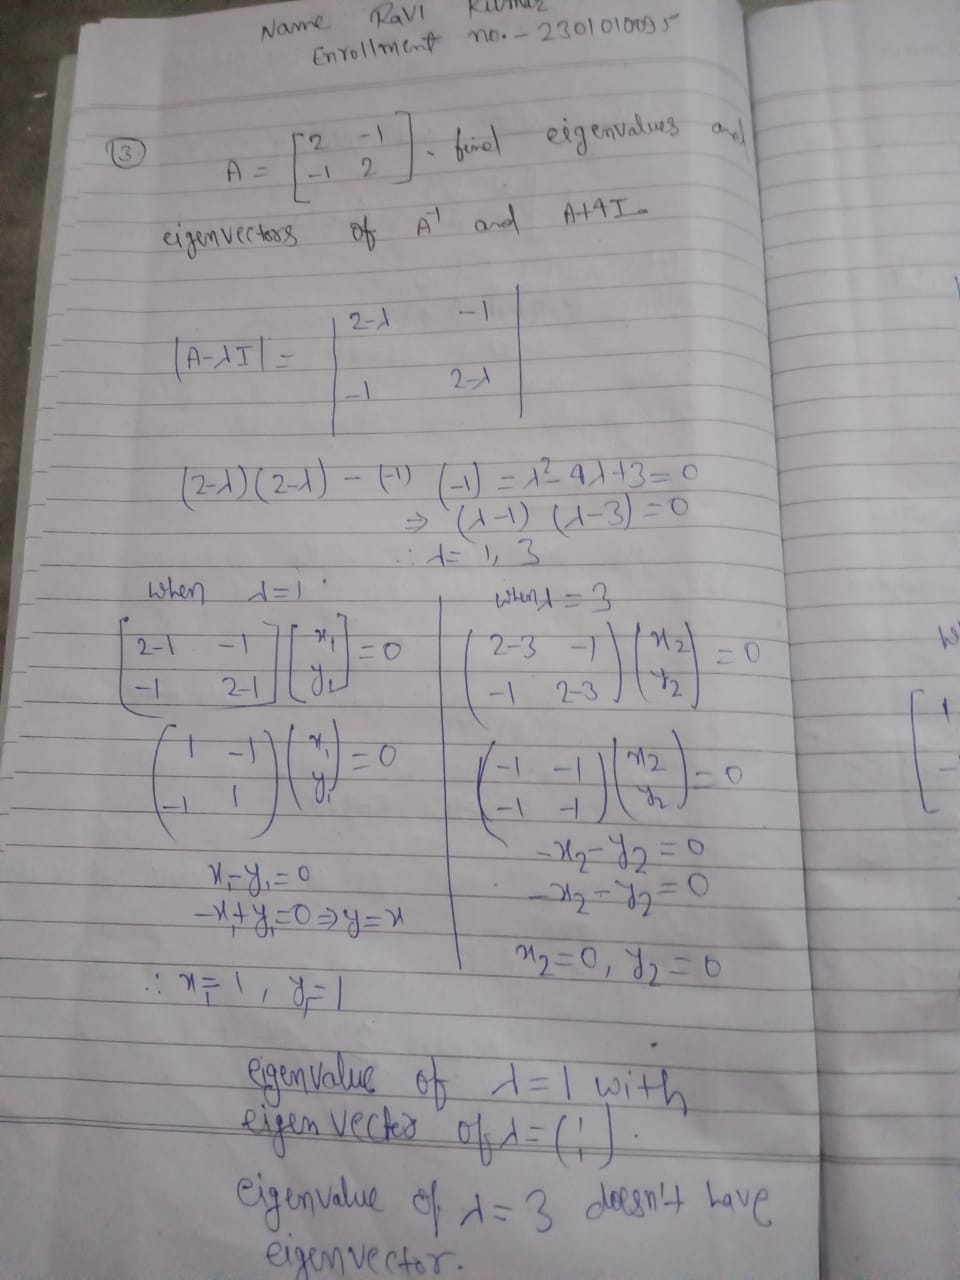 Name Ravi Kumar
Enrollment no. - 2301010095
(3) A = [2 -1; -1 2]. find eigenvalues and
eigenvectors of A⁻¹ and A+4I.
|A-λI| = |2-λ -1; -1 2-λ|
(2-λ)(2-λ) - (-1) (-1) = λ²-4λ+3=0
⇒ (λ-1) (λ-3) = 0
∴ λ= 1, 3
when λ=1
[2-1 -1; -1 2-1] [x₁; y₁] = 0
(1 -1; -1 1) (x₁; y₁) = 0
x₁-y₁=0
-x₁+y₁=0 ⇒ y=x
∴ x₁=1, y₁=1
when λ=3
(2-3 -1; -1 2-3) (x₂; y₂) = 0
(-1 -1; -1 -1) (x₂; y₂) = 0
-x₂-y₂=0
-x₂-y₂=0
x₂=0, y₂=0
eigenvalue of λ=1 with
eigen vector of λ= (1; 1).
eigenvalue of λ=3 doesn't have
eigenvector.